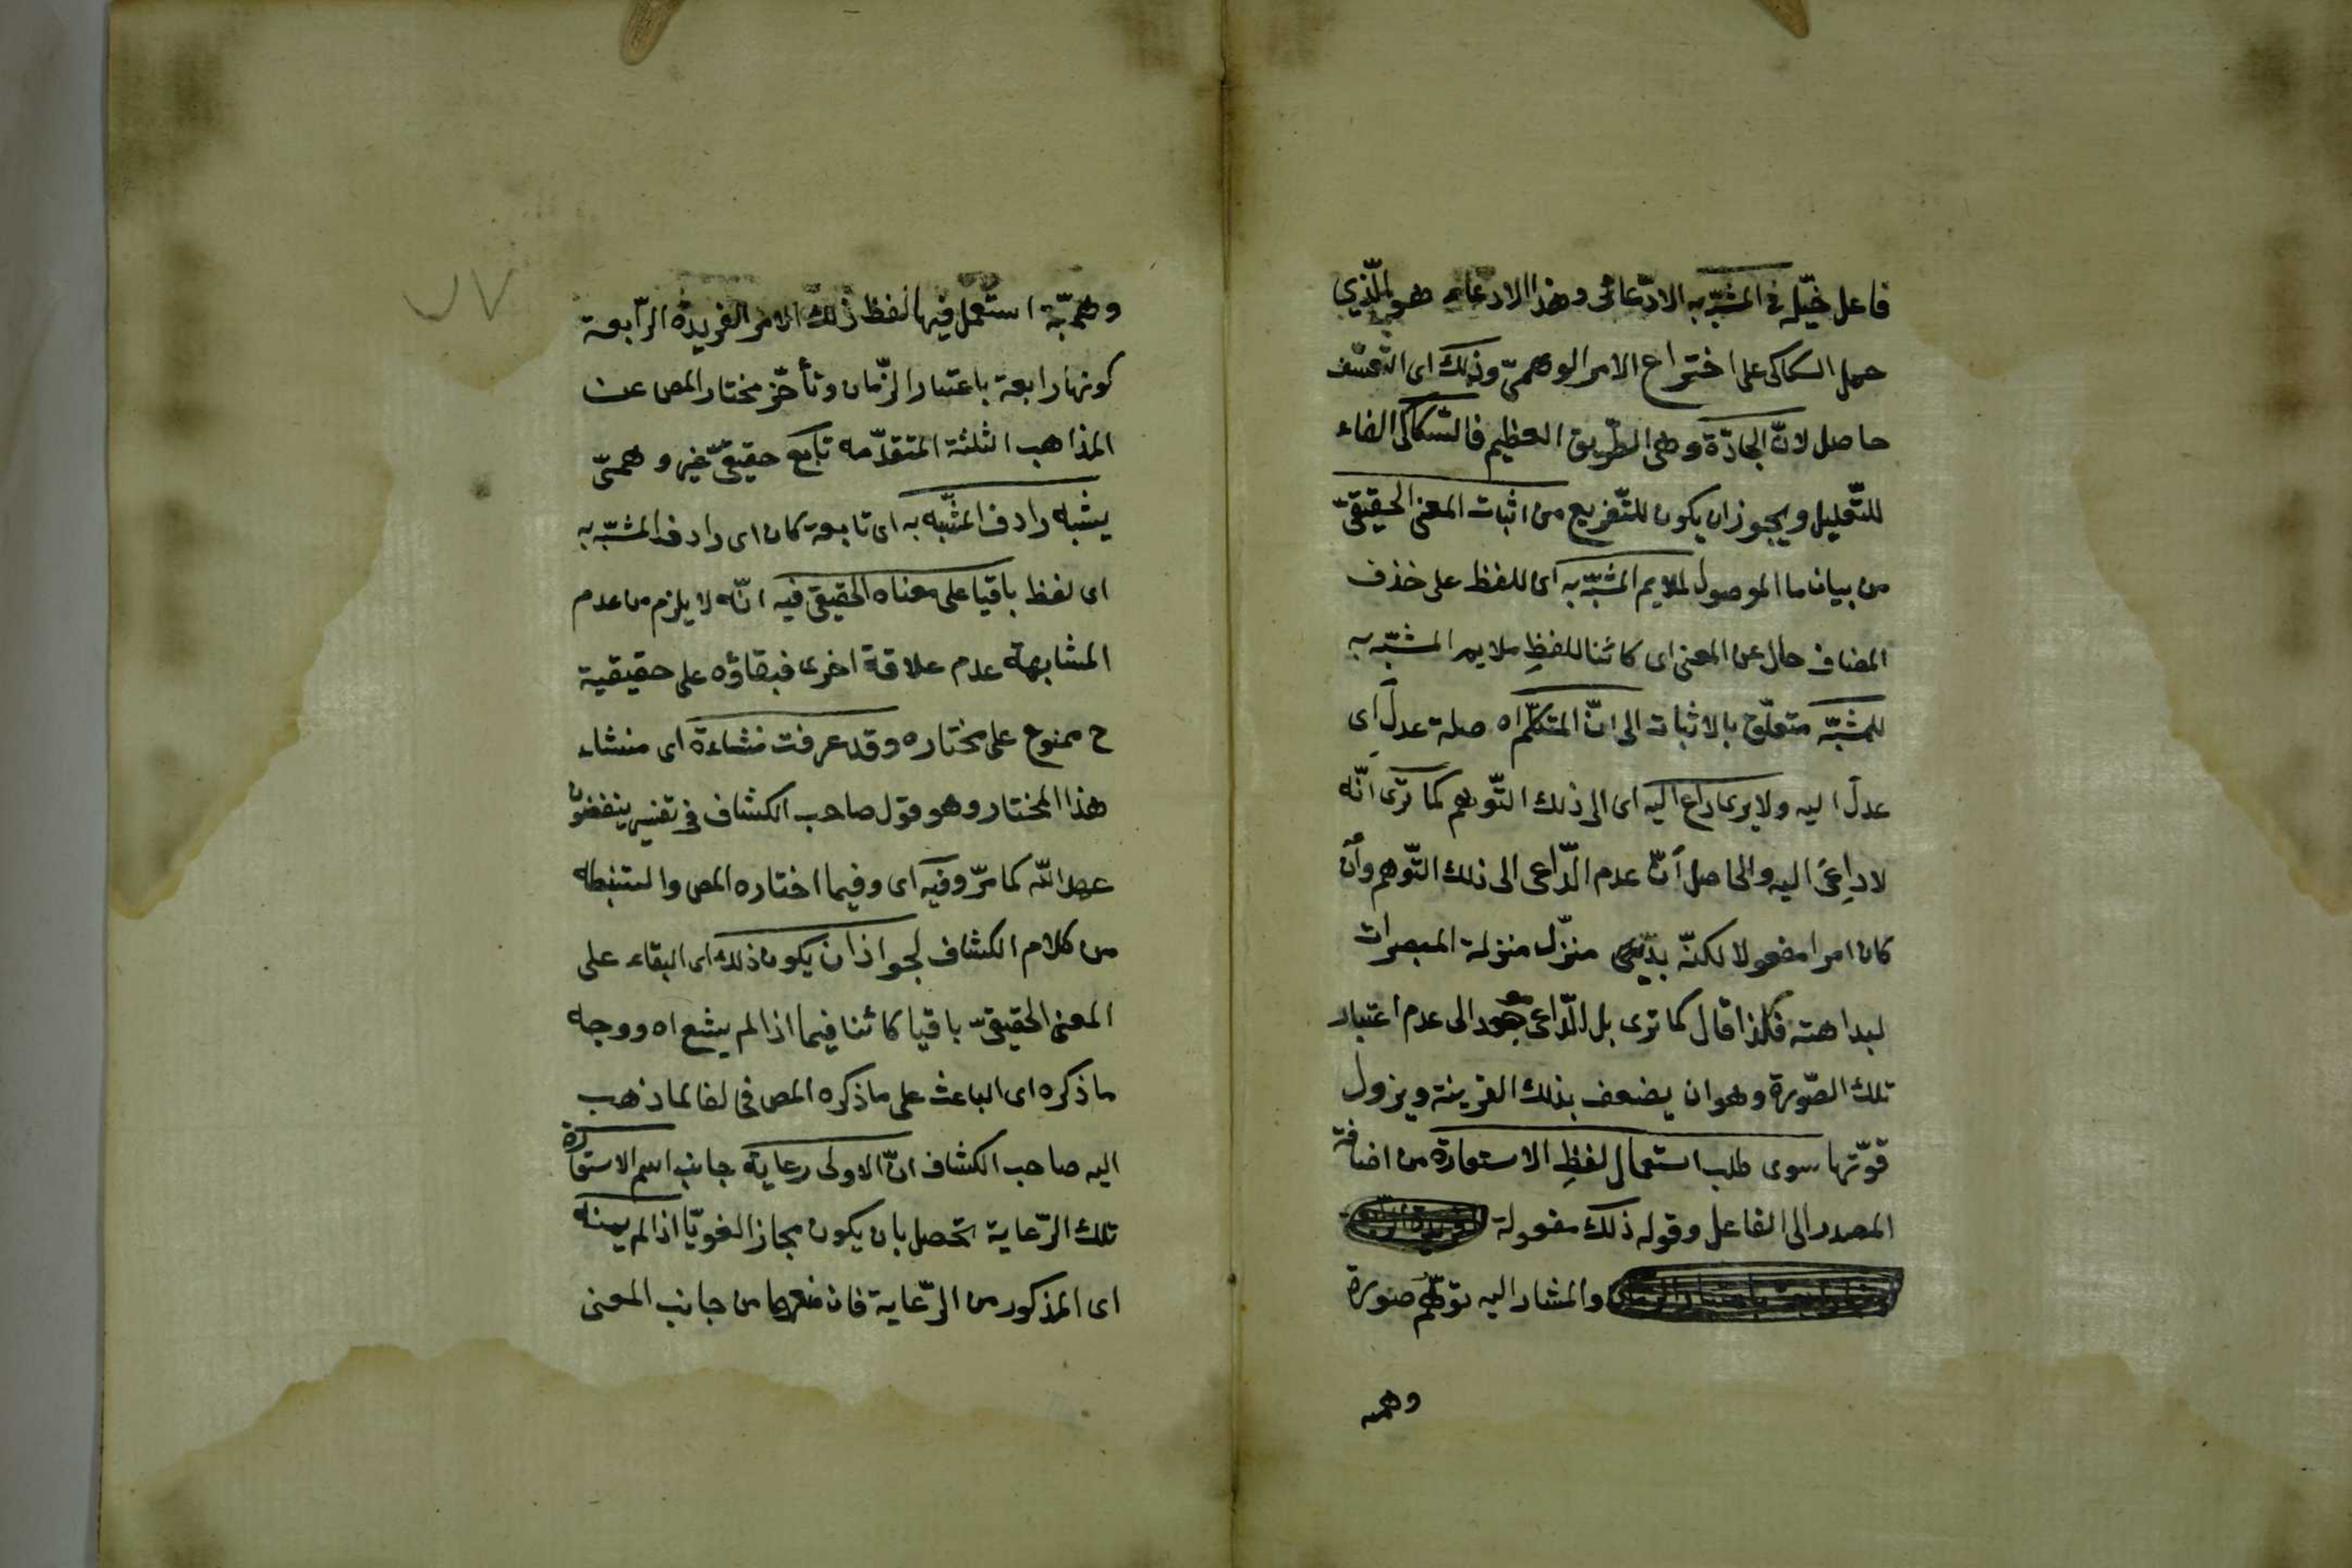 فاعل خيّله في المشبّه به الادّعائى وهذا الادعاء هو الّذي
حمل السكاكى على اختراع الامر الوهمىّ وذلك اى التّعسّف
حاصل لانّ الجادّة وهى الطّريق العظيم فالسّكاكى الفاء
للتّعليل ويجوز ان يكون للتّفريع من اثبات المعنى الحقيقىّ
من بيان ما الموصول لملايم المشبّه به اى للفظ على حذف
المضاف حال عن المعنى اى كائنا للفظِ ملايم المشبّه به
للمشبّه متعلّق بالاثبات الى انّ المتكلّم اه صلة عدل اى
عدل اليه ولا يرى داع اليه اى الى ذلك التّوهم كما ترى انّه
لا داعىَ اليه والحاصل أنّ عدم الدّاعى الى ذلك التّوهم وأن
كان امرا معقولا لكنّه بديهى منزّل منزلة المبصرات
لبداهته فلذا قال كما ترى بل الدّاعى موجود الى عدم اعتبار
تلك الصّورة وهو ان يضعف بذلك القرينة ويزول
قوّتها سوى طلب استعمال لفظِ الاستعارة من اضافة
المصدر الى الفاعل وقوله ذلك مفعولة
والمشار اليه توهّم صورة
وهميه
٧٧
وهميّة استعمل فيها لفظ ذلك الامر الفريدة الرّابعة
كونها رابعة باعتبار الزّمان وتأخّر مختار المص عن
المذاهب الثلثة المتقدّمه تابع حقيقىّ غير وهمىّ
يشبه رادف المشبّه به اى تابعة كان اى رادف المشبّه به
اى لفظ باقيا على معناه الحقيقى فيه انّه لا يلزم من عدم
المشابهة عدم علاقة اخرى فبقاؤه على حقيقية
ح ممنوع على مختاره وقد عرفت منشاءة اى منشاء
هذا المختار وهو قول صاحب الكشاف فى تفسير ينقضون
عهد اللّه كما مرّ وفيه اى وفيما اختاره المص واستنبطه
من كلام الكشاف لجواز ان يكون ذلك اى البقاء على
المعنى الحقيقىّ باقيا كائنا فيما اذا لم يشع اه ووجه
ما ذكره اى الباعث على ما ذكره المص فى لفا لما ذهب
اليه صاحب الكشاف انّ الاولى رعاية جانب اسم الاستعارة
تلك الرّعاية تحصل بان يكون مجازا لغويّا اذا لم يمنه
اى المذكور من الرّعاية فان منعها من جانب المعنى